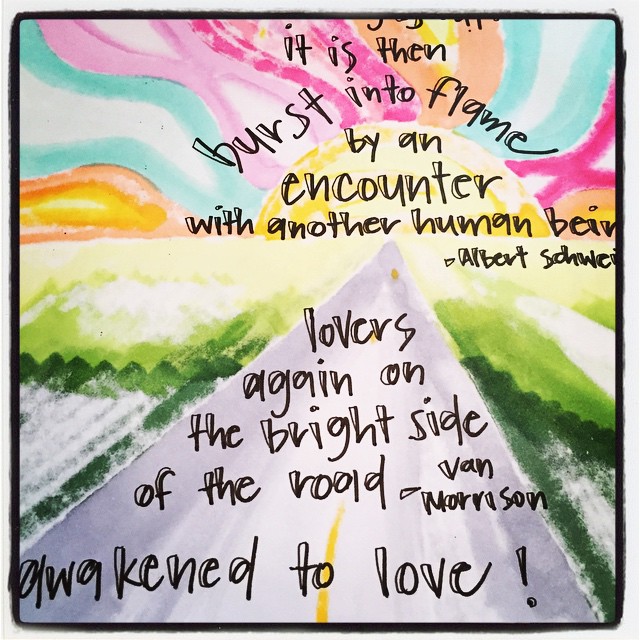 it is then
burst into flame
by an
encounter
with another human bein
- Albert Schwei
lovers
again on
the bright side
of the road - van
morrison
awakened to love!